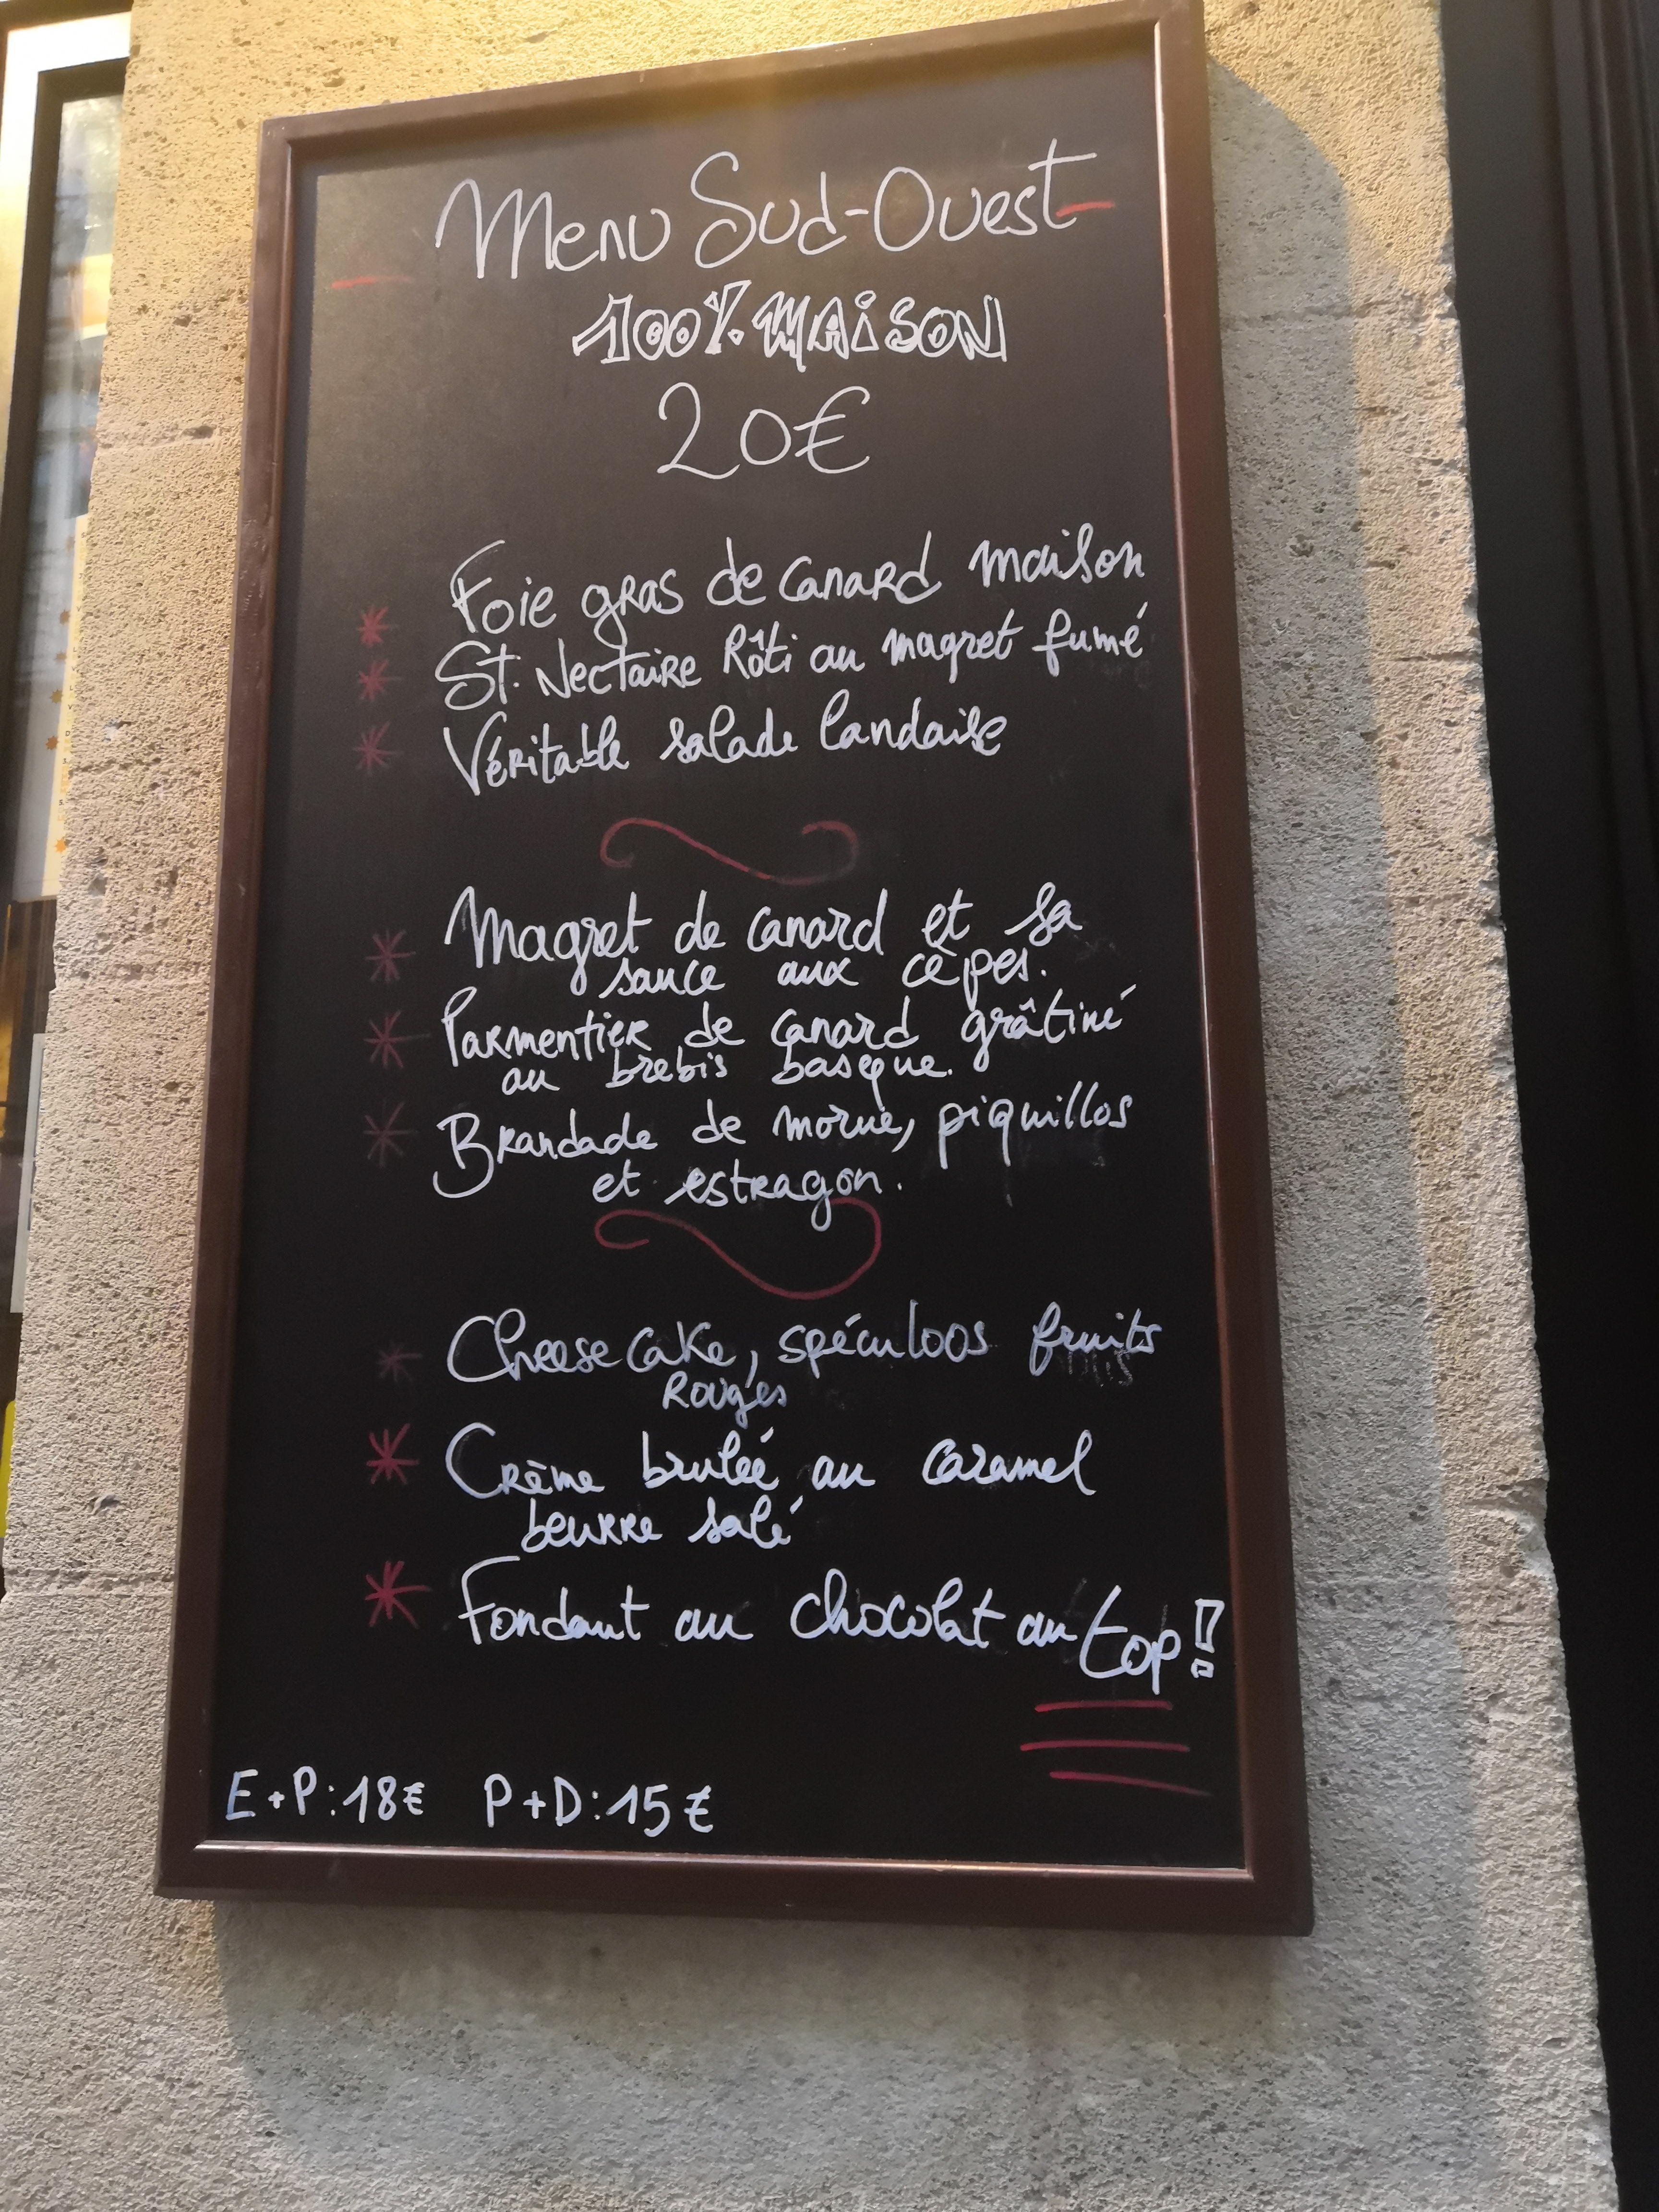 Menu Sud-Ouest
100% MAiSON
20€
Foie gras de canard maison
St. Nectaire Rôti au magret fumé
Véritable salade landaise
Magret de canard et sa
sauce aux cèpes.
Parmentier de canard grâtiné
au brebis basque.
Brandade de morue, piquillos
et estragon.
Cheese cake, spéculoos fruits
Rouges
Crème brulée au caramel
beurre salé
Fondant au chocolat au top!
E+P:18€ P+D:15€